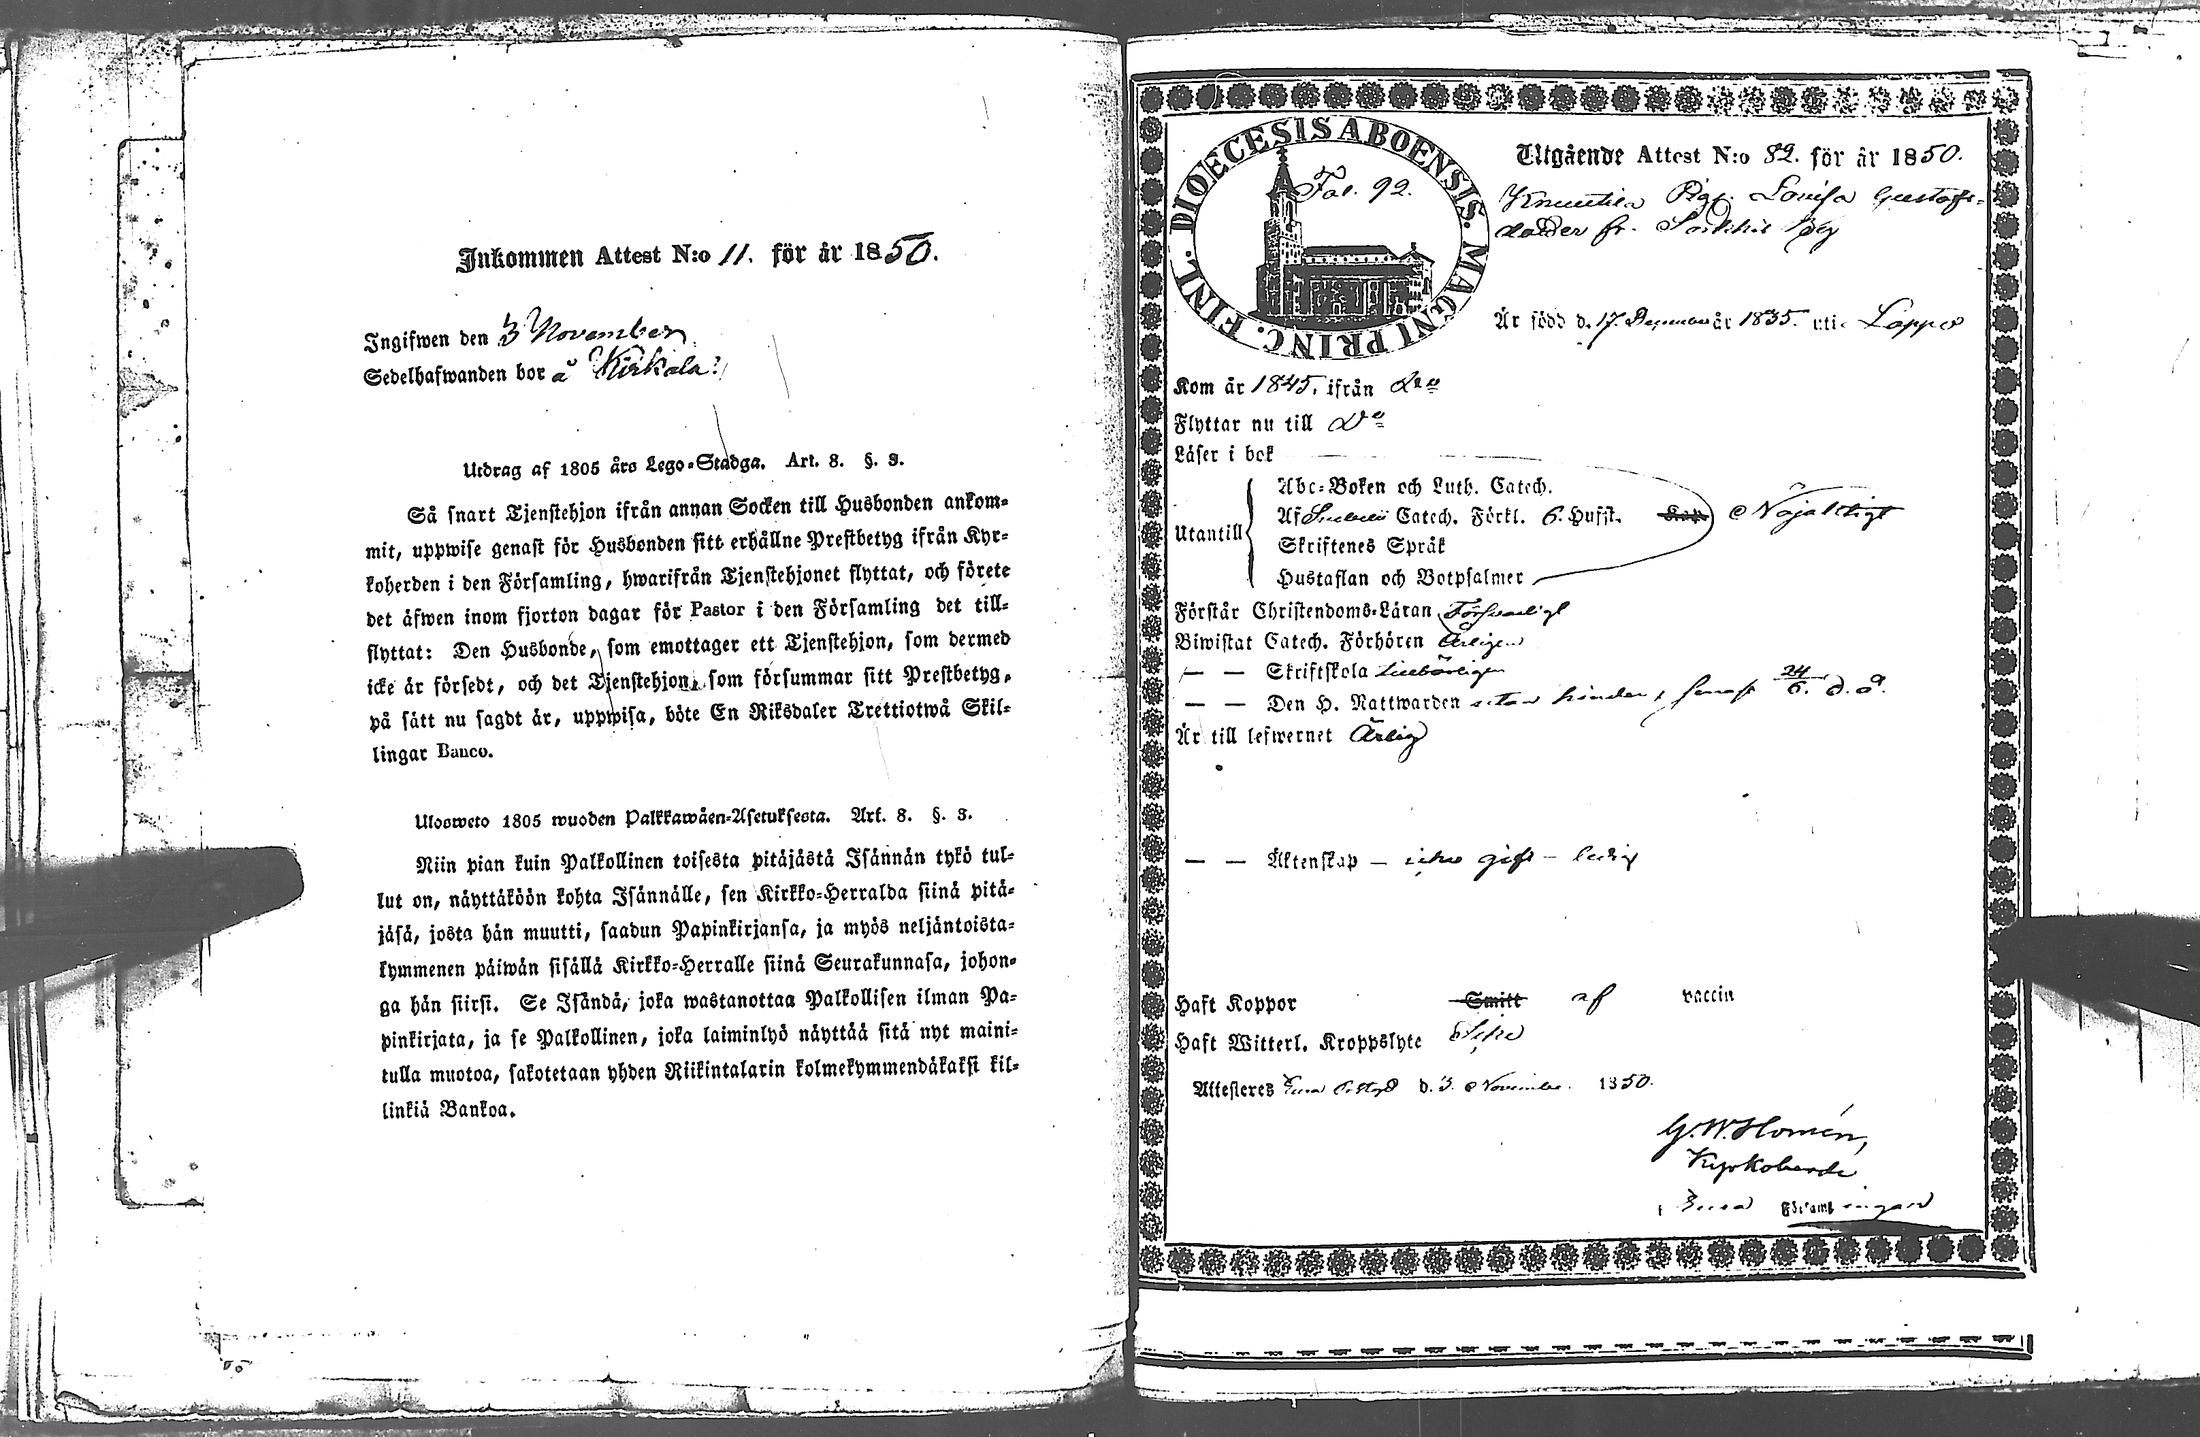 Inkommen Attest N:o 11. för år 1850.
Ingifwen den 3 November
Sedelhafwanden bor å Kirkola
Utdrag af 1805 års Lego-Stadga. Art. 8. §. 3.
Så snart Tjenstehjon ifrån annan Socken till Husbonden ankom-
mit, uppwise genast för Husbonden sitt erhållne Prestbetyg ifrån Kyr-
koherden i den Församling, hwarifrån Tjenstehjonet flyttat, och förete
det äfwen inom fjorton dagar för Pastor i den Församling det till-
flyttat: Den Husbonde, som emottager ett Tjenstehjon, som dermed
icke är försedt, och det Tjenstehjon, som försummar sitt Prestbetyg,
på sätt nu sagdt är, uppwisa, böte En Riksdaler Trettiotwå Skil-
lingar Banco.
Ulosweto 1805 wuoden Palkkawäen-Asetuksesta. Art. 8. §. 3.
Niin pian kuin Palkollinen toisesta pitäjästä Isännän tykö tul-
lut on, näyttäköön kohta Isännälle, sen Kirkko-Herralda siinä pitä-
jäsä, josta hän muutti, saadun Papinkirjansa, ja myös neljäntoista-
kymmenen päiwän sisällä Kirkko-Herralle siinä Seurakunnasa, johon-
ga hän siirsi. Se Isändä, joka wastanottaa Palkollisen ilman Pa-
pinkirjata, ja se Palkollinen, joka laiminlyö näyttää sitä nyt maini-
tulla muotoa, sakotetaan yhden Riikintalarin kolmekymmendäkaksi kil-
linkiä Bankoa.
DIOECESIS ABOENSIS. MAGNI PRINC. FINL.
Fol. 92.
Utgående Attest N:o 82. för år 1850.
Pig. Lovisa Gustafs-
dotter fr.
Är född d. 17. December år 1835. uti Lappo
Kom år 1845. ifrån D:o
Flyttar nu till D:o
Läser i bok
Utantill
Abc-Boken och Luth. Catech.
Af Svebelii Catech. Förkl. 6. Hufst. Kap. Nöjaktigt
Skriftenes Språk
Hustaflan och Botpsalmer
Förstår Christendoms-Läran Försvarligt
Biwistat Catech. Förhören Årligen
— — Skriftskola tillbörligen
— — Den H. Nattwarden utan hinder, senast 24/6. d. å.
Är till lefwernet Ärlig
— — Äktenskap — icke gift — ledig
Haft Koppor Smitt af vaccin
Haft Witterl. Kroppslyte Icke
Attesteres Eura Prestgd d. 3. November 1850.
G. W. Homén,
Kyrkoherde
i Eura Församlingar